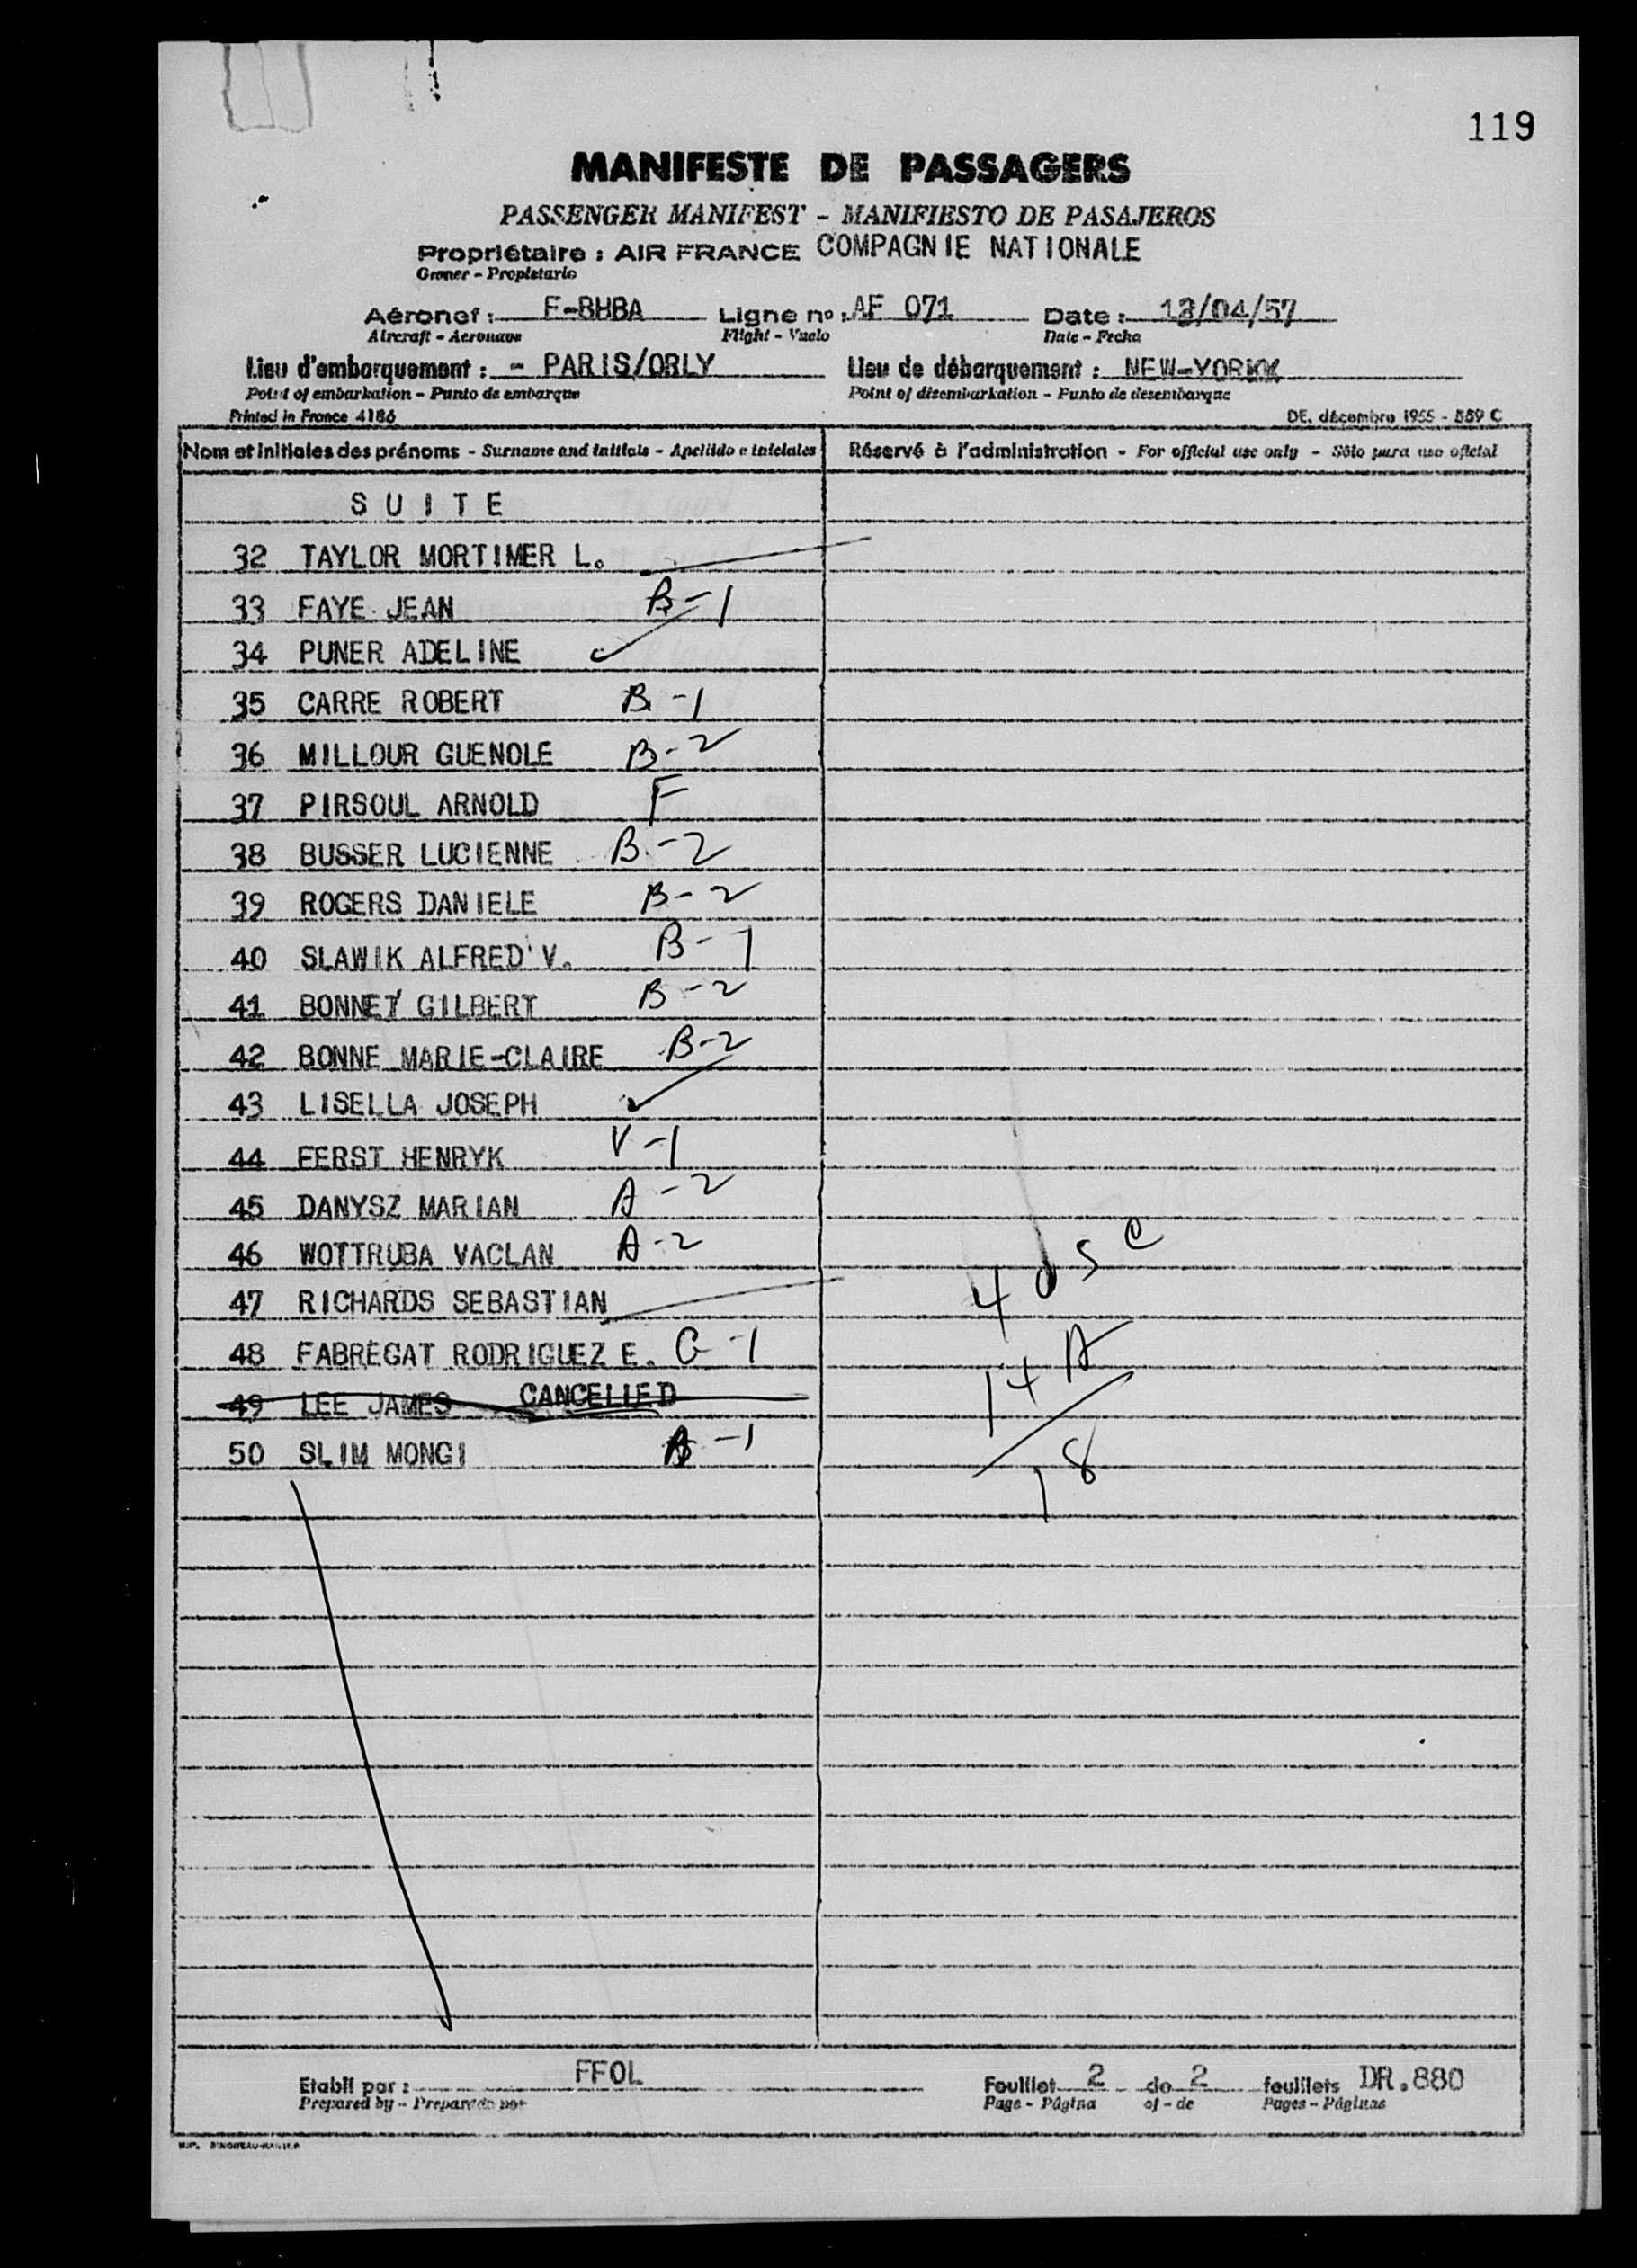 119
MANIFESTE DE PASSAGERS
PASSENGER MANIFEST - MANIFIESTO DE PASAJEROS
Propriétaire : AIR FRANCE COMPAGNIE NATIONALE
Owner - Propietario
Aéronef : F-BHBA Ligne no : AF 071 Date : 13/04/57
Aircraft - Aeronave Flight - Vuelo Date - Fecha
Lieu d'embarquement : - PARIS/ORLY Lieu de débarquement : NEW-YORKK
Point of embarkation - Punto de embarque Point of disembarkation - Punto de desembarque
Printed in France 4186 DE. décembre 1955 - 559 C
Nom et initiales des prénoms - Surname and initials - Apellido e iniciales Réservé à l'administration - For official use only - Sólo para uso oficial
SUITE
32 TAYLOR MORTIMER L.
33 FAYE JEAN B-1
34 PUNER ADELINE
35 CARRE ROBERT B-1
36 MILLOUR GUENOLE B-2
37 PIRSOUL ARNOLD F
38 BUSSER LUCIENNE B-2
39 ROGERS DANIELE B-2
40 SLAWIK ALFRED V. B-1
41 BONNET GILBERT B-2
42 BONNE MARIE-CLAIRE B-2
43 LISELLA JOSEPH
44 FERST HENRYK V-1
45 DANYSZ MARIAN A-2
46 WOTTRUBA VACLAN A-2
4 USC
47 RICHARDS SEBASTIAN
48 FABREGAT RODRIGUEZ E. G-1
14 A
49 LEE JAMES CANCELLED
50 SLIM MONGI A-1
18
Etabli par : FFOL Feuillet 2 de 2 feuillets DR.880
Prepared by - Preparado por Page - Página of - de Pages - Páginas